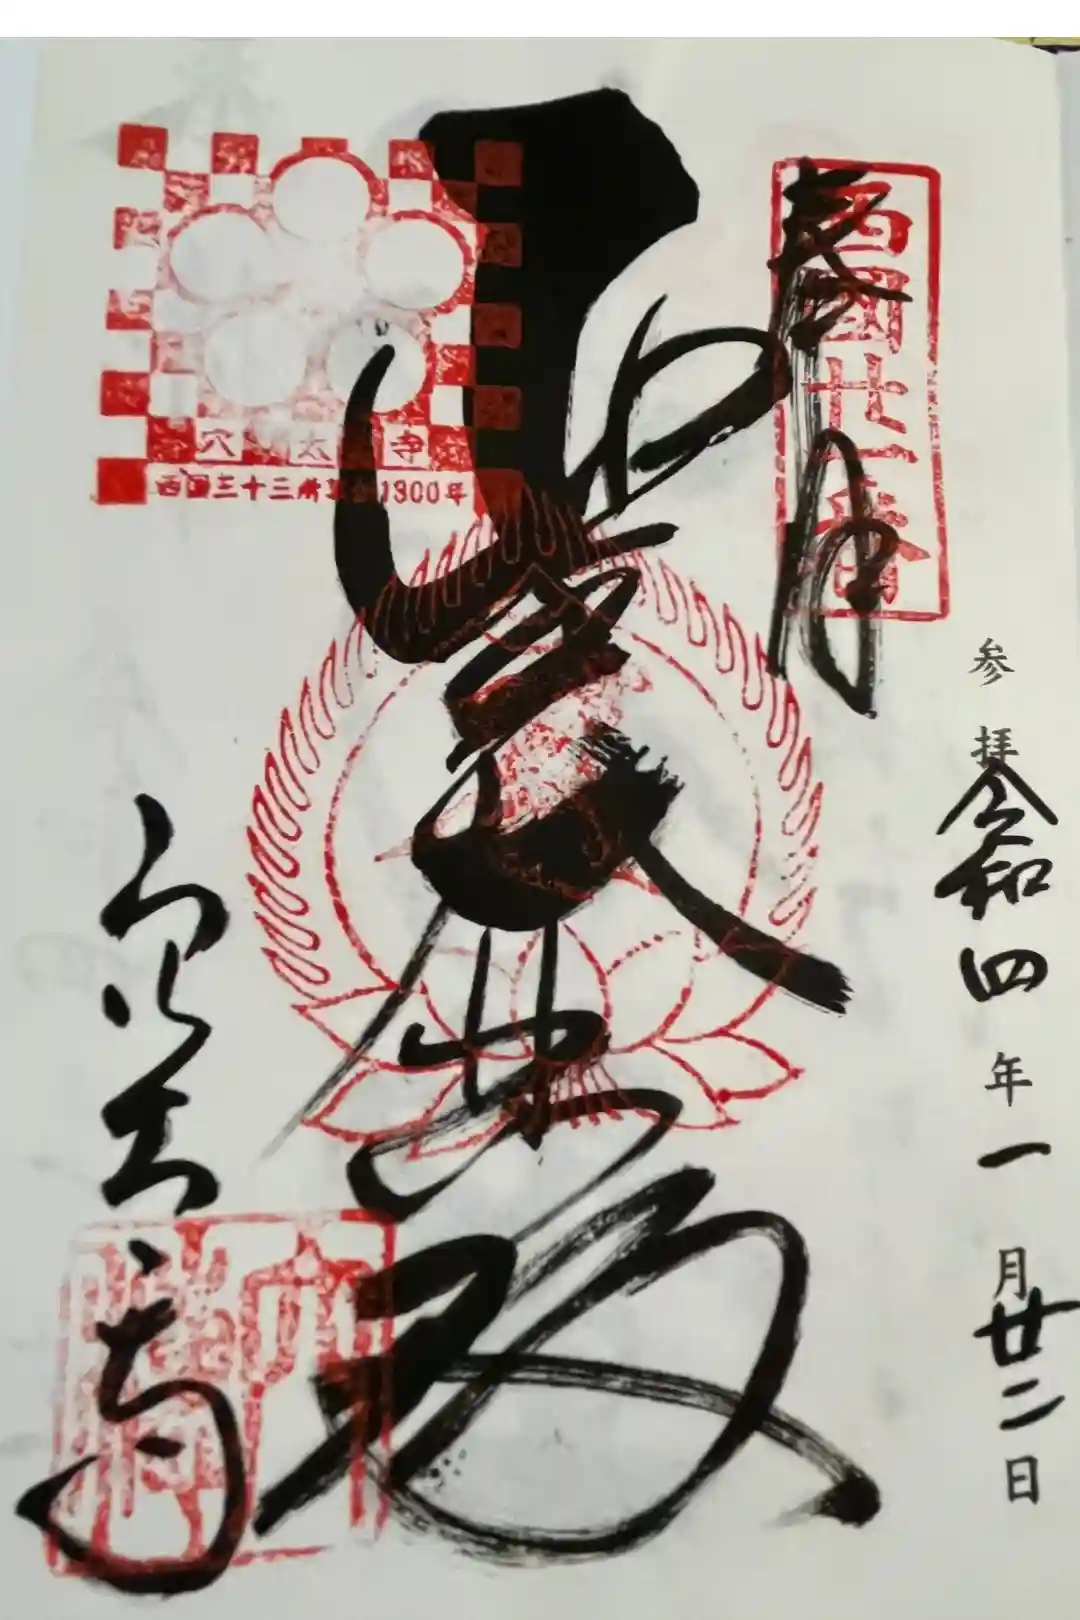 参拝令和四年一月廿二日
奉拝
西國廿一番
聖大悲殿
穴太寺
西国三十三所草創1300年
穴太寺